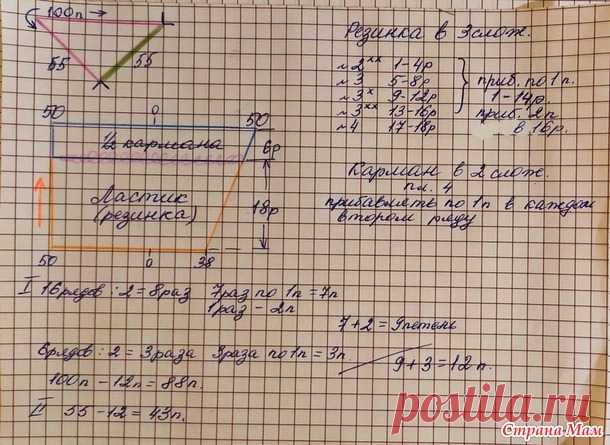 100п →
55
55
Резинка в 3 слож.
№2ˣˣ 1-4р
№3 5-8р
№3ˣ 9-12р
№3ˣˣ 13-16р
№4 17-18р
приб. по 1п.
1-14р.
приб. 2п
в 16р.
50 0 50
½ кармана
6р
Ластик
(резинка)
18р
50 0 38
Карман в 2 слож.
пл. 4
прибавлять по 1п в каждом
втором ряду
I 16рядов : 2 = 8раз 7раз по 1п = 7п
1раз - 2п
7+2 = 9петель
6рядов : 2 = 3раза 3раза по 1п = 3п.
9+3 = 12п.
100п - 12п = 88п.
II 55-12 = 43п.
postila.ru
Страна Мам